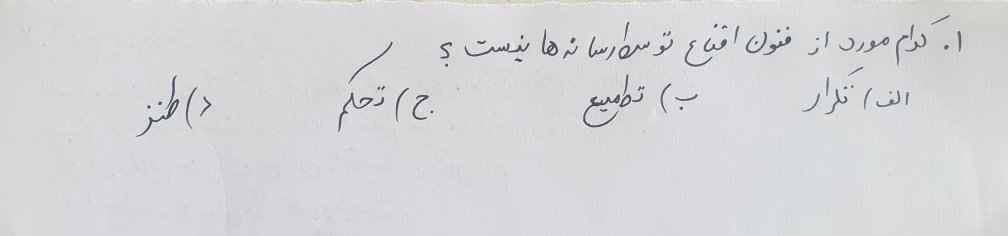 ۱. کدام مورد از فنون اقناع توسط رسانه ها نیست ؟
الف) تکرار ب) تطمیع ج) تحکم د) طنز